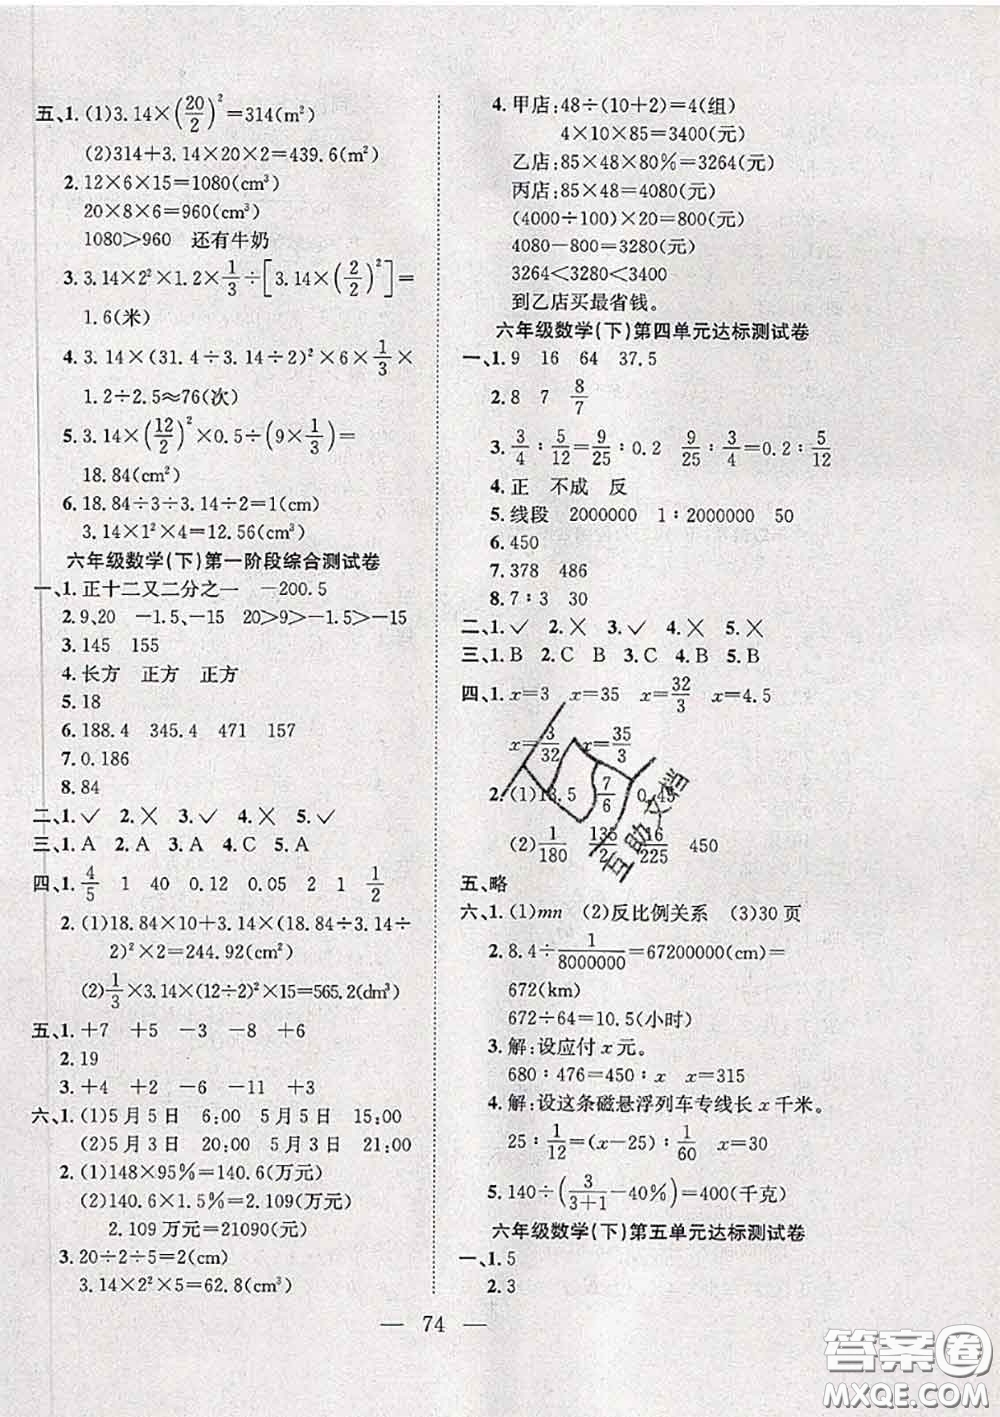 五、1. (1)3.14×(20/2)²=314(m²)
(2)314+3.14×20×2=439.6(m²)
2. 12×6×15=1080(cm³)
20×8×6=960(cm³)
1080>960 还有牛奶
3. 3.14×2²×1.2×1/3÷[3.14×(2/2)²]=
1.6(米)
4. 3.14×(31.4÷3.14÷2)²×6×1/3×
1.2÷2.5≈76(次)
5. 3.14×(12/2)²×0.5÷(9×1/3)=
18.84(cm²)
6. 18.84÷3÷3.14÷2=1(cm)
3.14×1²×4=12.56(cm³)
六年级数学(下)第一阶段综合测试卷
一、1. 正十二又二分之一 -200.5
2. 9、20 -1.5、-15 20>9>-1.5>-15
3. 145 155
4. 长方 正方 正方
5. 18
6. 188.4 345.4 471 157
7. 0.186
8. 84
二、1.✓ 2.✕ 3.✓ 4.✕ 5.✓
三、1. A 2. A 3. A 4. C 5. A
四、1. 4/5 1 40 0.12 0.05 2 1 1/2
2. (1)18.84×10+3.14×(18.84÷3.14÷
2)²×2=244.92(cm²)
(2)1/3×3.14×(12÷2)²×15=565.2(dm³)
五、1. +7 +5 -3 -8 +6
2. 19
3. +4 +2 -6 -11 +3
六、1. (1)5月5日 6:00 5月5日 15:00
(2)5月3日 20:00 5月3日 21:00
2. (1)148×95%=140.6(万元)
(2)140.6×1.5%=2.109(万元)
2.109万元=21090(元)
3. 20÷2÷5=2(cm)
3.14×2²×5=62.8(cm³)
4. 甲店:48÷(10+2)=4(组)
4×10×85=3400(元)
乙店:85×48×80%=3264(元)
丙店:85×48=4080(元)
(4000÷100)×20=800(元)
4080-800=3280(元)
3264<3280<3400
到乙店买最省钱。
六年级数学(下)第四单元达标测试卷
一、1. 9 16 64 37.5
2. 8 7 8/7
3. 3/4:5/12=9/25:0.2 9/25:3/4=0.2:5/12
4. 正 不成 反
5. 线段 2000000 1:2000000 50
6. 450
7. 378 486
8. 7:3 30
二、1.✓ 2.✕ 3.✓ 4.✕ 5.✕
三、1. B 2. C B 3. C 4. B 5. B
四、1. x=3 x=35 x=32/3 x=4.5
x=3/32 x=35/3
2. (1)13.5 7/6 0.45
(2)1/180 135/2 16/225 450
五、略
六、1. (1)mn (2)反比例关系 (3)30页
2. 8.4÷1/8000000=67200000(cm)=
672(km)
672÷64=10.5(小时)
3. 解:设应付x元。
680:476=450:x x=315
4. 解:设这条磁悬浮列车专线长x千米。
25:1/12=(x-25):1/60 x=30
5. 140÷(3/(3+1)-40%)=400(千克)
六年级数学(下)第五单元达标测试卷
一、1. 5
2. 3
— 74 —
互助文档
答案圈
MXQE.COM